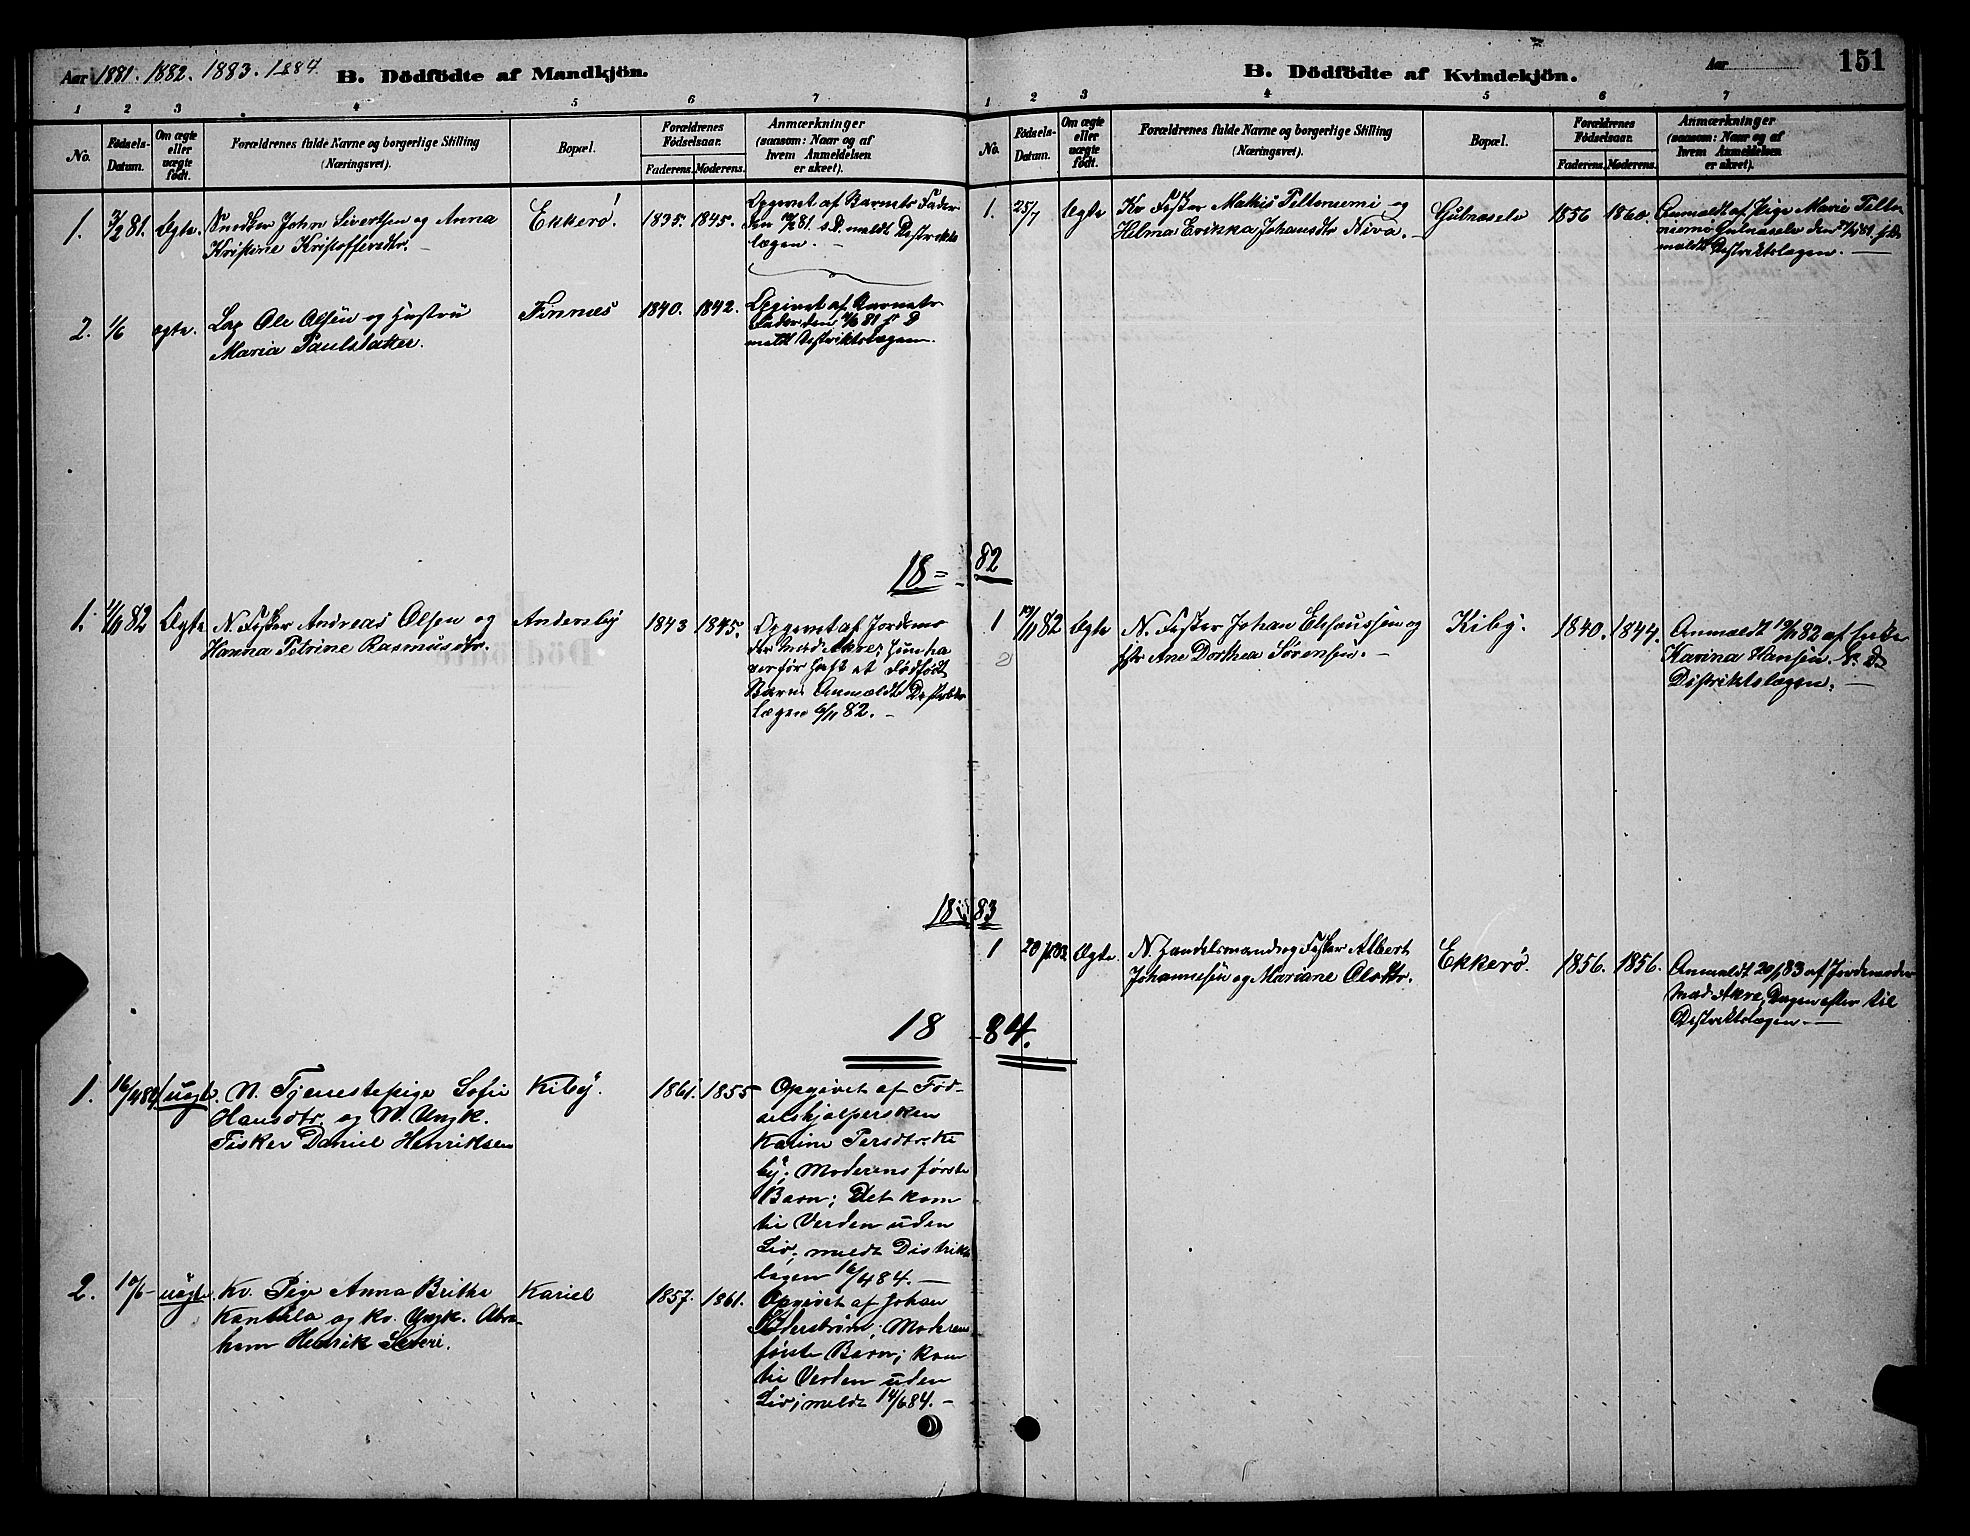 Aar 1881. 1882. 1883. 1884.
B. Dödfödte af Mandkjön.
1 2 3 4 5 6 7
No.
Födsels-
Datum.
Om ægte
eller
uægte
födt.
Forældrenes fulde Navne og borgerlige Stilling
(Næringsvei).
Bopæl.
Forældrenes
Födselsaar.
Faderens. Moderens.
Anmærkninger
(saasom: Naar og af
hvem Anmeldelsen
er skeet).
1. 3/2 81. Ægte. John Sivertsen og Anna
Kristine Kristoffersdtr. –
Ekkerø. 1835. 1845.
Opgivet af Barnets Fader
den 81. s. D. meldt Distrikts
lægen. –
2. 1/6 ægte. Lap Ole Olsen og Hustru
Maria Paulsdaker.
Finnæs 1840. 1842.
Opgivet af Barnets
Fader den 81 s. D
meldt Distriktslægen.
18 =
1. 82 Ægte N. Fisker Andreas Olsen og
Hanna Petrine Rasmusdtr.
Andersby 1843 1845.
Opgivet af Jordemo
der Mad. Akre; hun ha
ver før haft et dødfødt
Barn. Anmældt Distrikts
Lægen 6/11 82. –
18
18
1. 16/4 84 uægte. N. Tjenestepige Sofie
Hansdtr. og N. Ungk.
Fisker Daniel Henriksen
Kiby. 1861. 1855
Opgivet af Fød-
selshjælpersken
Karine Persdtr. Ki
by; Moderens første
Barn; Det kom
til Verden uden
Liv; meldt Distrikts
lægen 16/4 84. –
2. 10/6 – uægte. Kv. Pige Anna Britha
Kantola og kv. Ungk. Abra
ham Henrik Severi.
Kariel 1857. 1861.
Opgivet af Johan
Moderens
første Barn; kom
til Verden uden
Liv; meldt 14/6 84. –
B. Dödfödte af Kvindekjön.
Aar
151
1 2 3 4 5 6 7
No.
Födsels-
Datum.
Om ægte
eller
uægte
födt.
Forældrenes fulde Navne og borgerlige Stilling
(Næringsvei).
Bopæl.
Forældrenes
Födselsaar.
Faderens. Moderens.
Anmærkninger
(saasom: Naar og af
hvem Anmeldelsen
er skeet).
1. 25/7 Ægte Kv Fisker Mathis Peltoniemi og
Helma Erikka Johansdtr Niva. –
Gulnæselv 1856 1860.
Anmeldt af Pige Marie Pelto
niemi Gulnæselv den 81. s. D.
meldt Distriktslægen. –
82
1 19/11 82 Ægte N. Fisker Johan og
Ane Dorthea Sørensen. –
Kiby. 1840. 1844.
Anmeldt 82 af
Karina Hansen. s. D
Distriktslægen. –
83
1 20 Ægte. N. Handelsmand og Fisker Albert
Johannesen og Mariane Olsdtr.
Ekkerø. 1856. 1856.
Anmeldt 83 af Jordemoder
Mad. Akre, Dagen efter til
Distriktslægen. –
84.